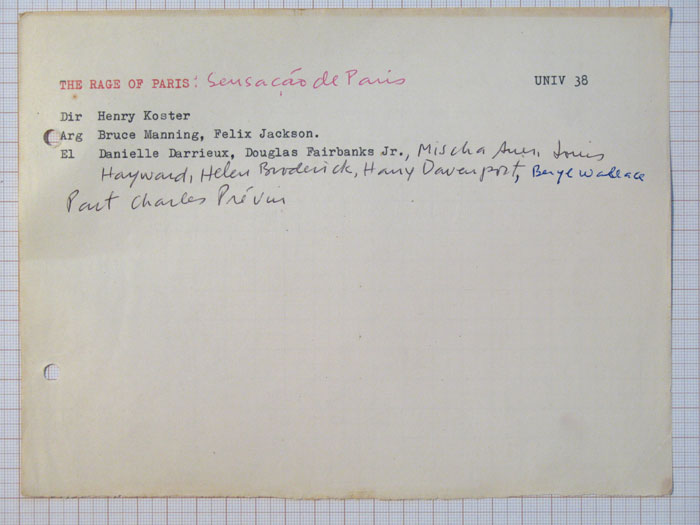 THE RAGE OF PARIS: Sensação de Paris UNIV 38
Dir Henry Koster
Arg Bruce Manning, Felix Jackson.
El Danielle Darrieux, Douglas Fairbanks Jr., Mischa Auer, Louis
Hayward, Helen Broderick, Harry Davenport, Beryl Wallace
Part Charles Prévin